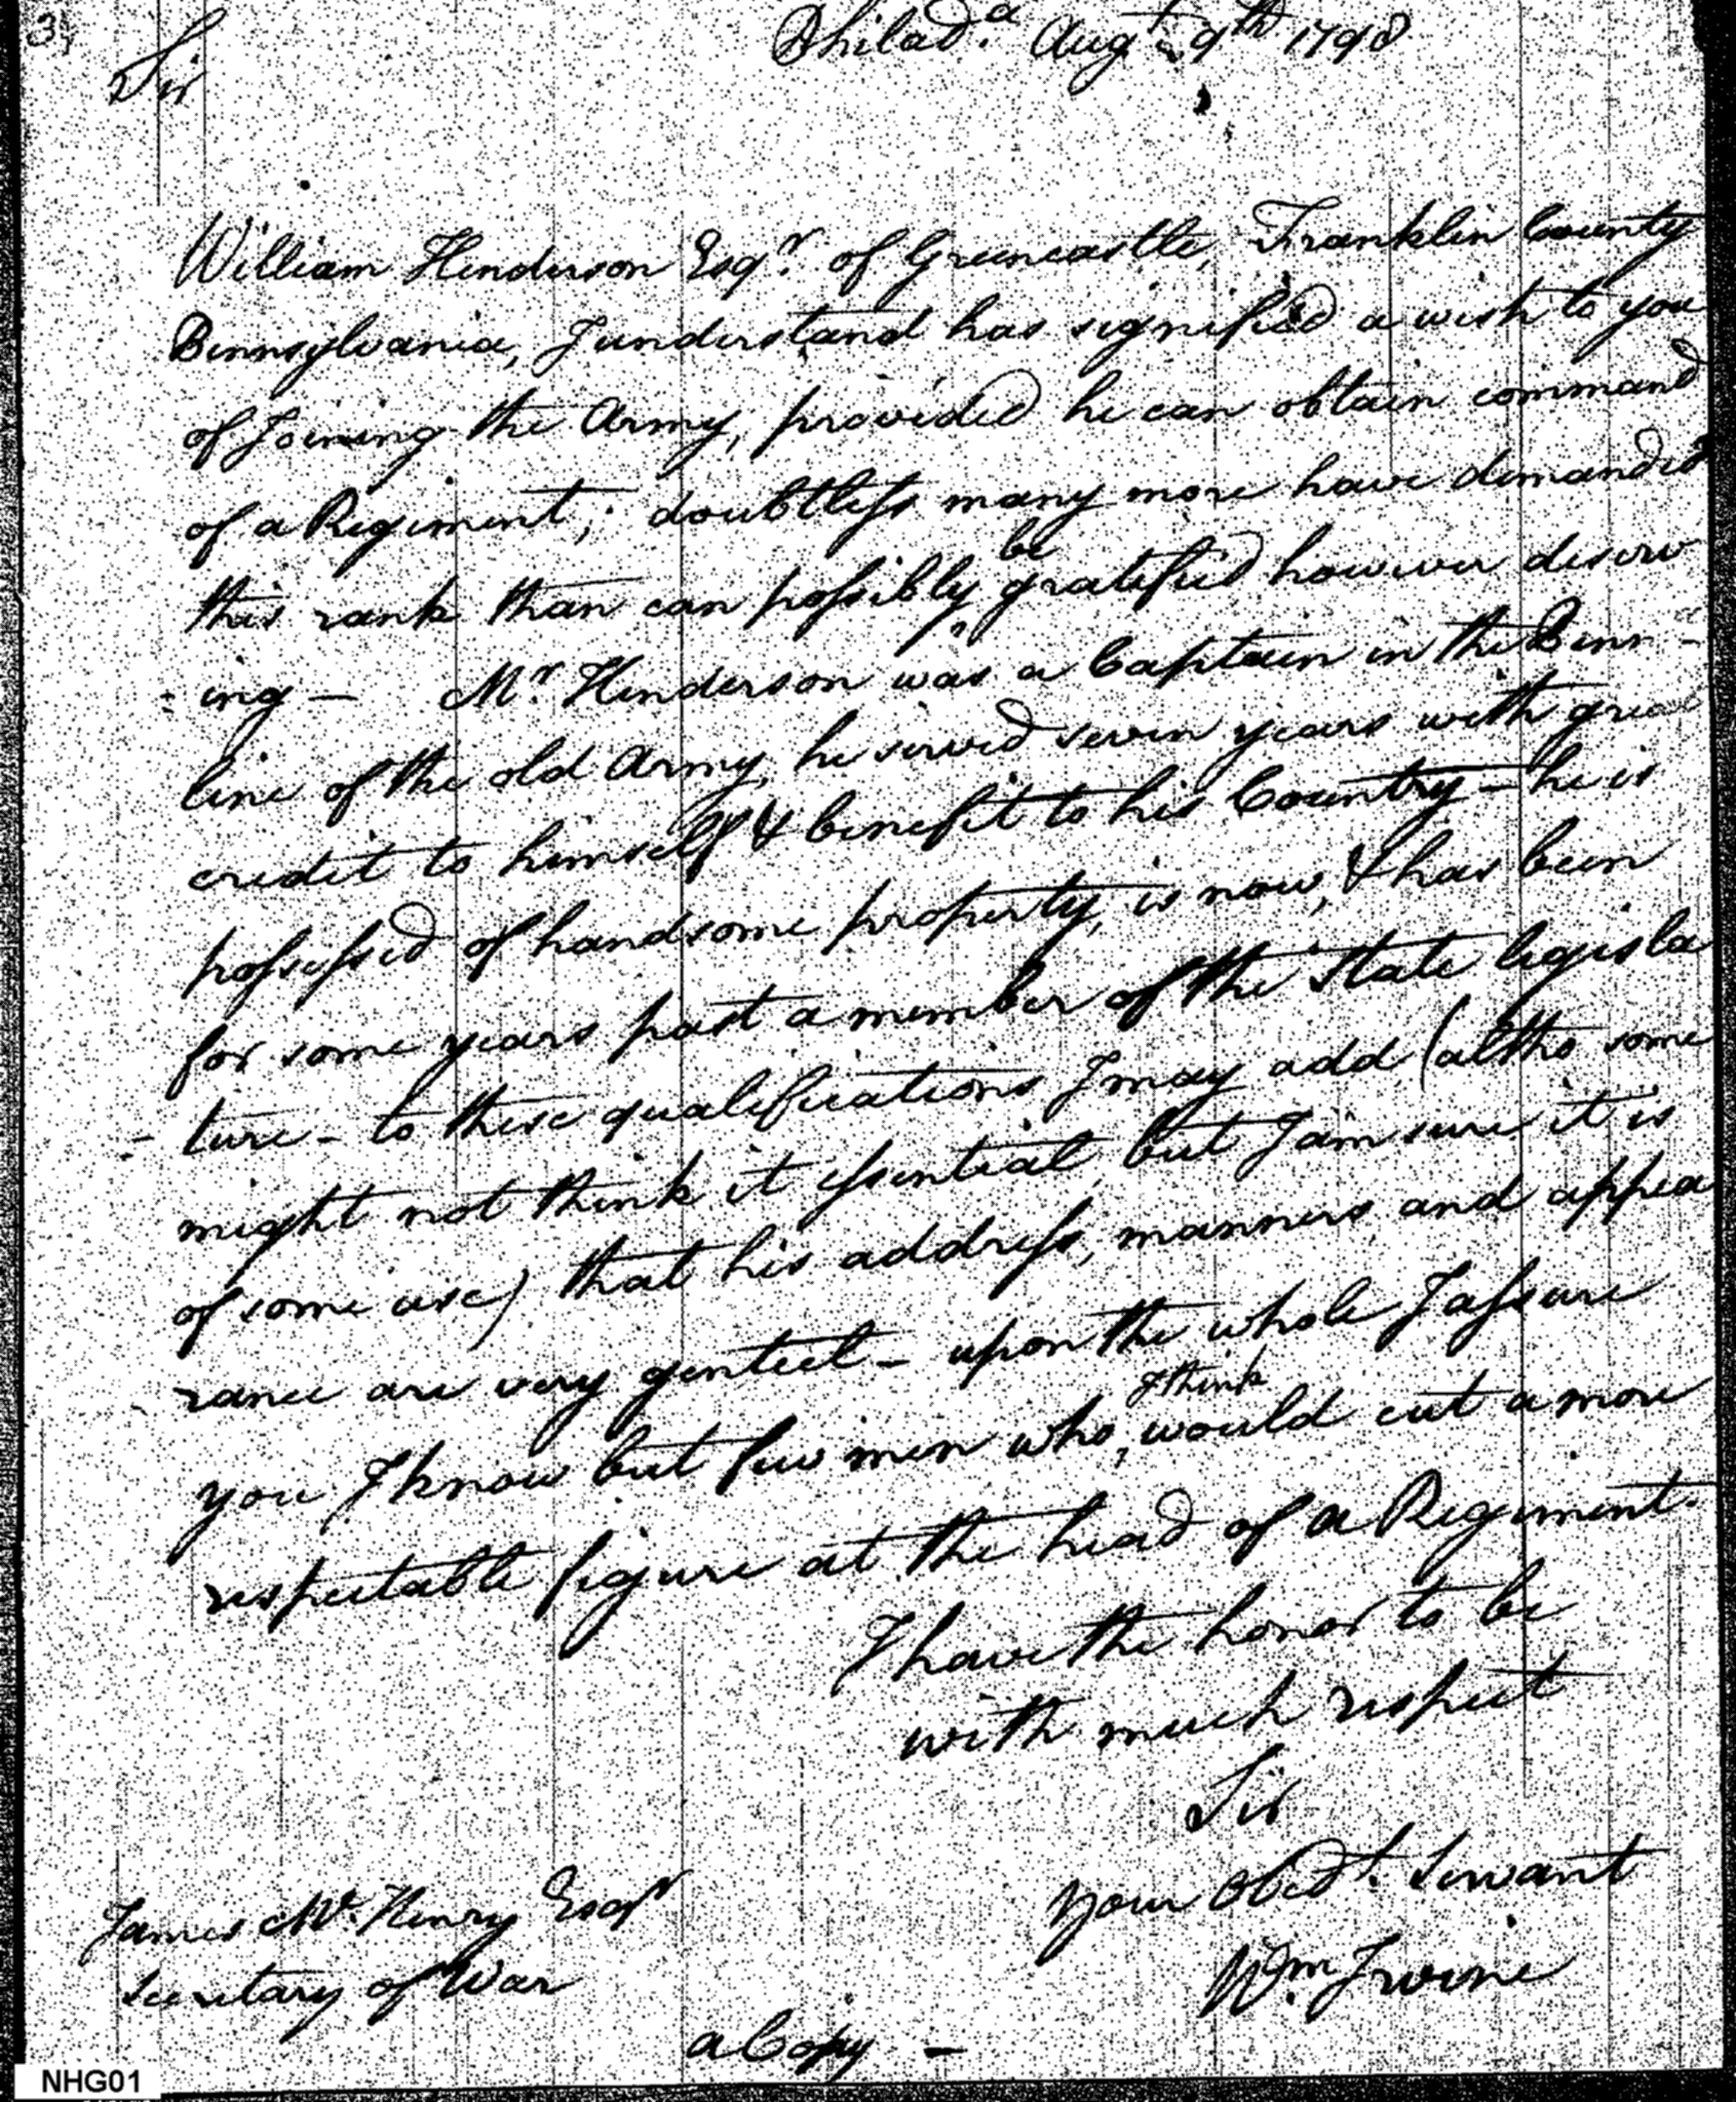 3
Philad.a Augt 9th 1798
Sir
William Henderson Esqr. of Greencastle, Franklin County
Pennsylvania, I understand has signified a wish to you
of Joining the Army, provided he can obtain command
of a Regiment; doubtless many more have demanded
this rank than can possibly be gratified however deserv
: ing — Mr. Henderson was a Captain in the Penn -
line of the old Army, he served seven years with great
credit to himself & benefit to his Country — he is
possessed of handsome property, is now, & has been
for some years past a member of the State legisla
- ture - to these qualifications I may add (altho some
might not think it essential, but I am sure it is
of some use) that his address, manners and appea
rance are very genteel - upon the whole I assure
you I know but few men who, I think would cut a more
respectable figure at the head of a Regiment.
I have the honor to be
with much respect
Sir
your Obedt. Servant
Wm. Irvine
James Mc. Henry Esqr
Secretary of War
a Copy —
NHG01